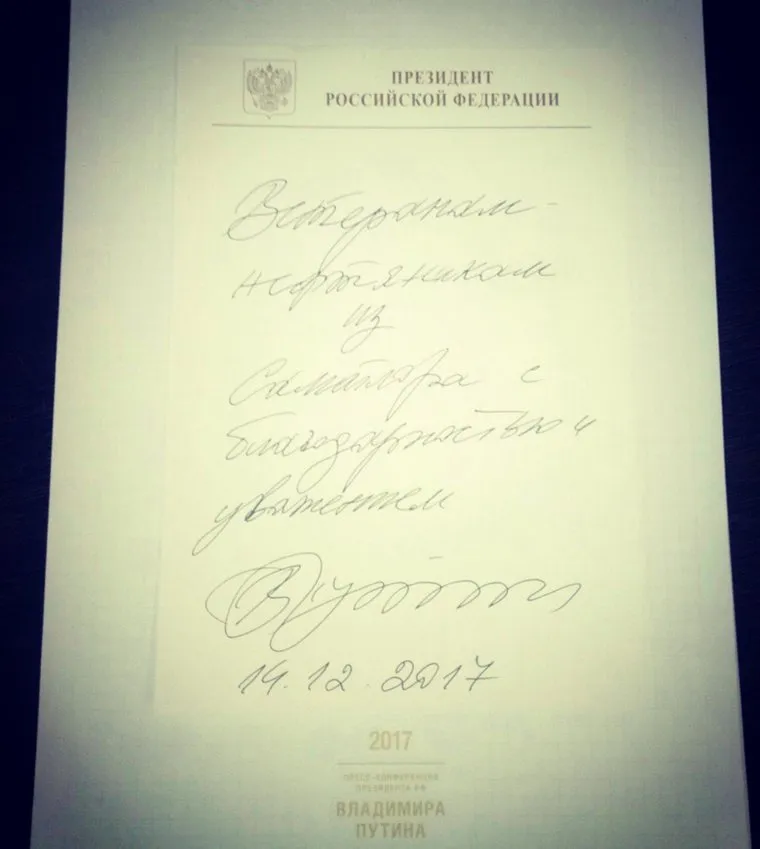 ПРЕЗИДЕНТ
РОССИЙСКОЙ ФЕДЕРАЦИИ
Ветеранам-
нефтяникам
из
Самотлора с
благодарностью и
уважением
14.12.2017
2017
ПРЕСС-КОНФЕРЕНЦИЯ
ПРЕЗИДЕНТА РФ
ВЛАДИМИРА
ПУТИНА